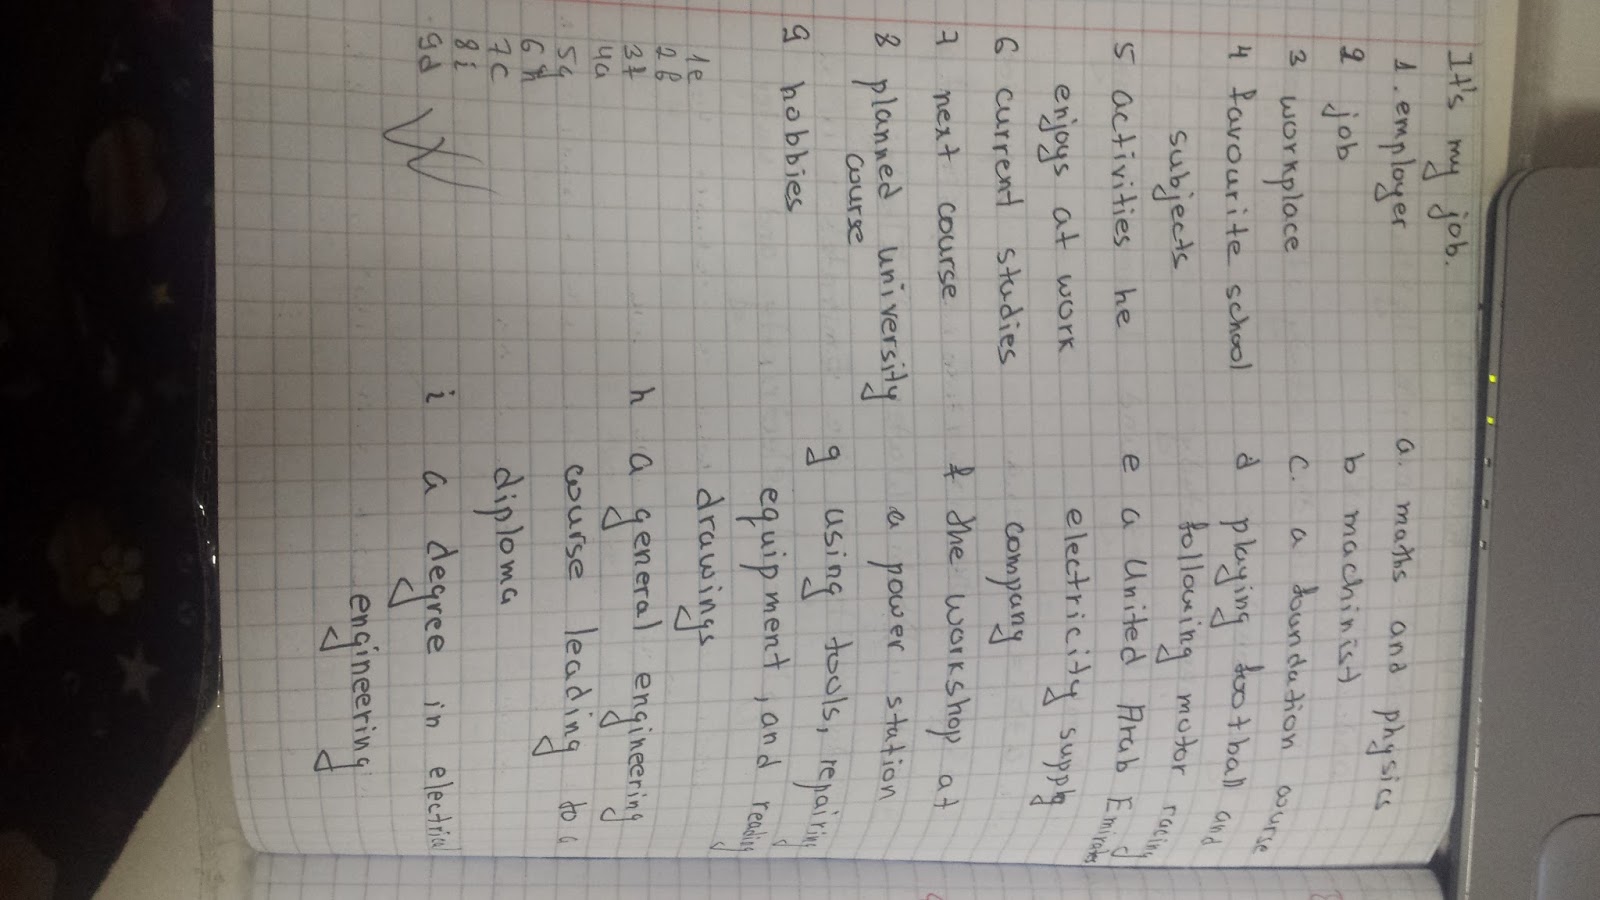 It's my job.
1. employer
2 job
3 workplace
4 favourite school
subjects
5 activities he
enjoys at work
6 current studies
7 next course
8 planned university
course
9 hobbies
a. maths and physics
b machinist
c. a foundation course
d playing football and
following motor racing
e a United Arab Emirates
electricity supply
company
f the workshop at
a power station
g using tools, repairing
equipment, and reading
drawings
h a general engineering
course leading to a
diploma
i a degree in electrical
engineering
1e
2b
3f
4a
5g
6h
7c
8i
9d